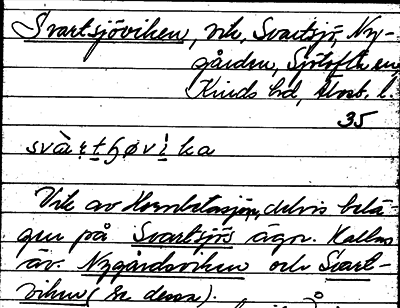 Svartsjöviken, vik, Svartsjö, Ny-
gården, Sjötofta sn,
Kinds hd, Älvsb. l.
35
svàrtʃøvika
Vik av Hornbetasjön, delvis belä-
gen på Svartsjös ägor. Kallas
äv. Nygårdsviken och Svart-
viken (se dessa).